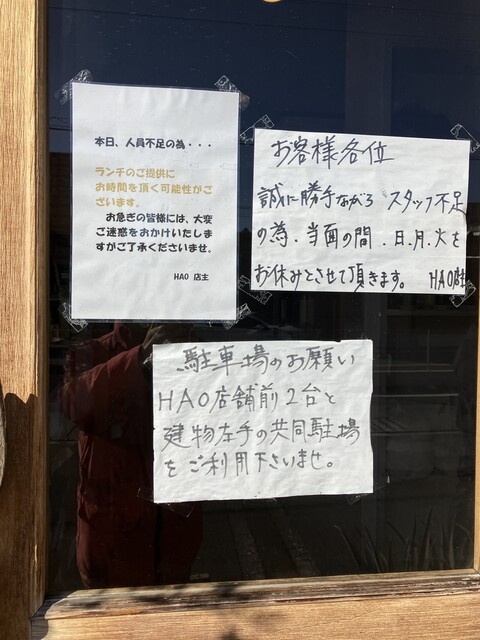 本日、人員不足の為・・・
ランチのご提供に
お時間を頂く可能性がご
ざいます。
お急ぎの皆様には、大変
ご迷惑をおかけいたしま
すがご了承くださいませ。
HAO 店主
お客様各位
誠に勝手ながら スタッフ不足
の為、当面の間、日、月、火を
お休みとさせて頂きます。 HAO店主
駐車場のお願い
HAO店舗前2台と
建物左手の共同駐場
をご利用下さいませ。